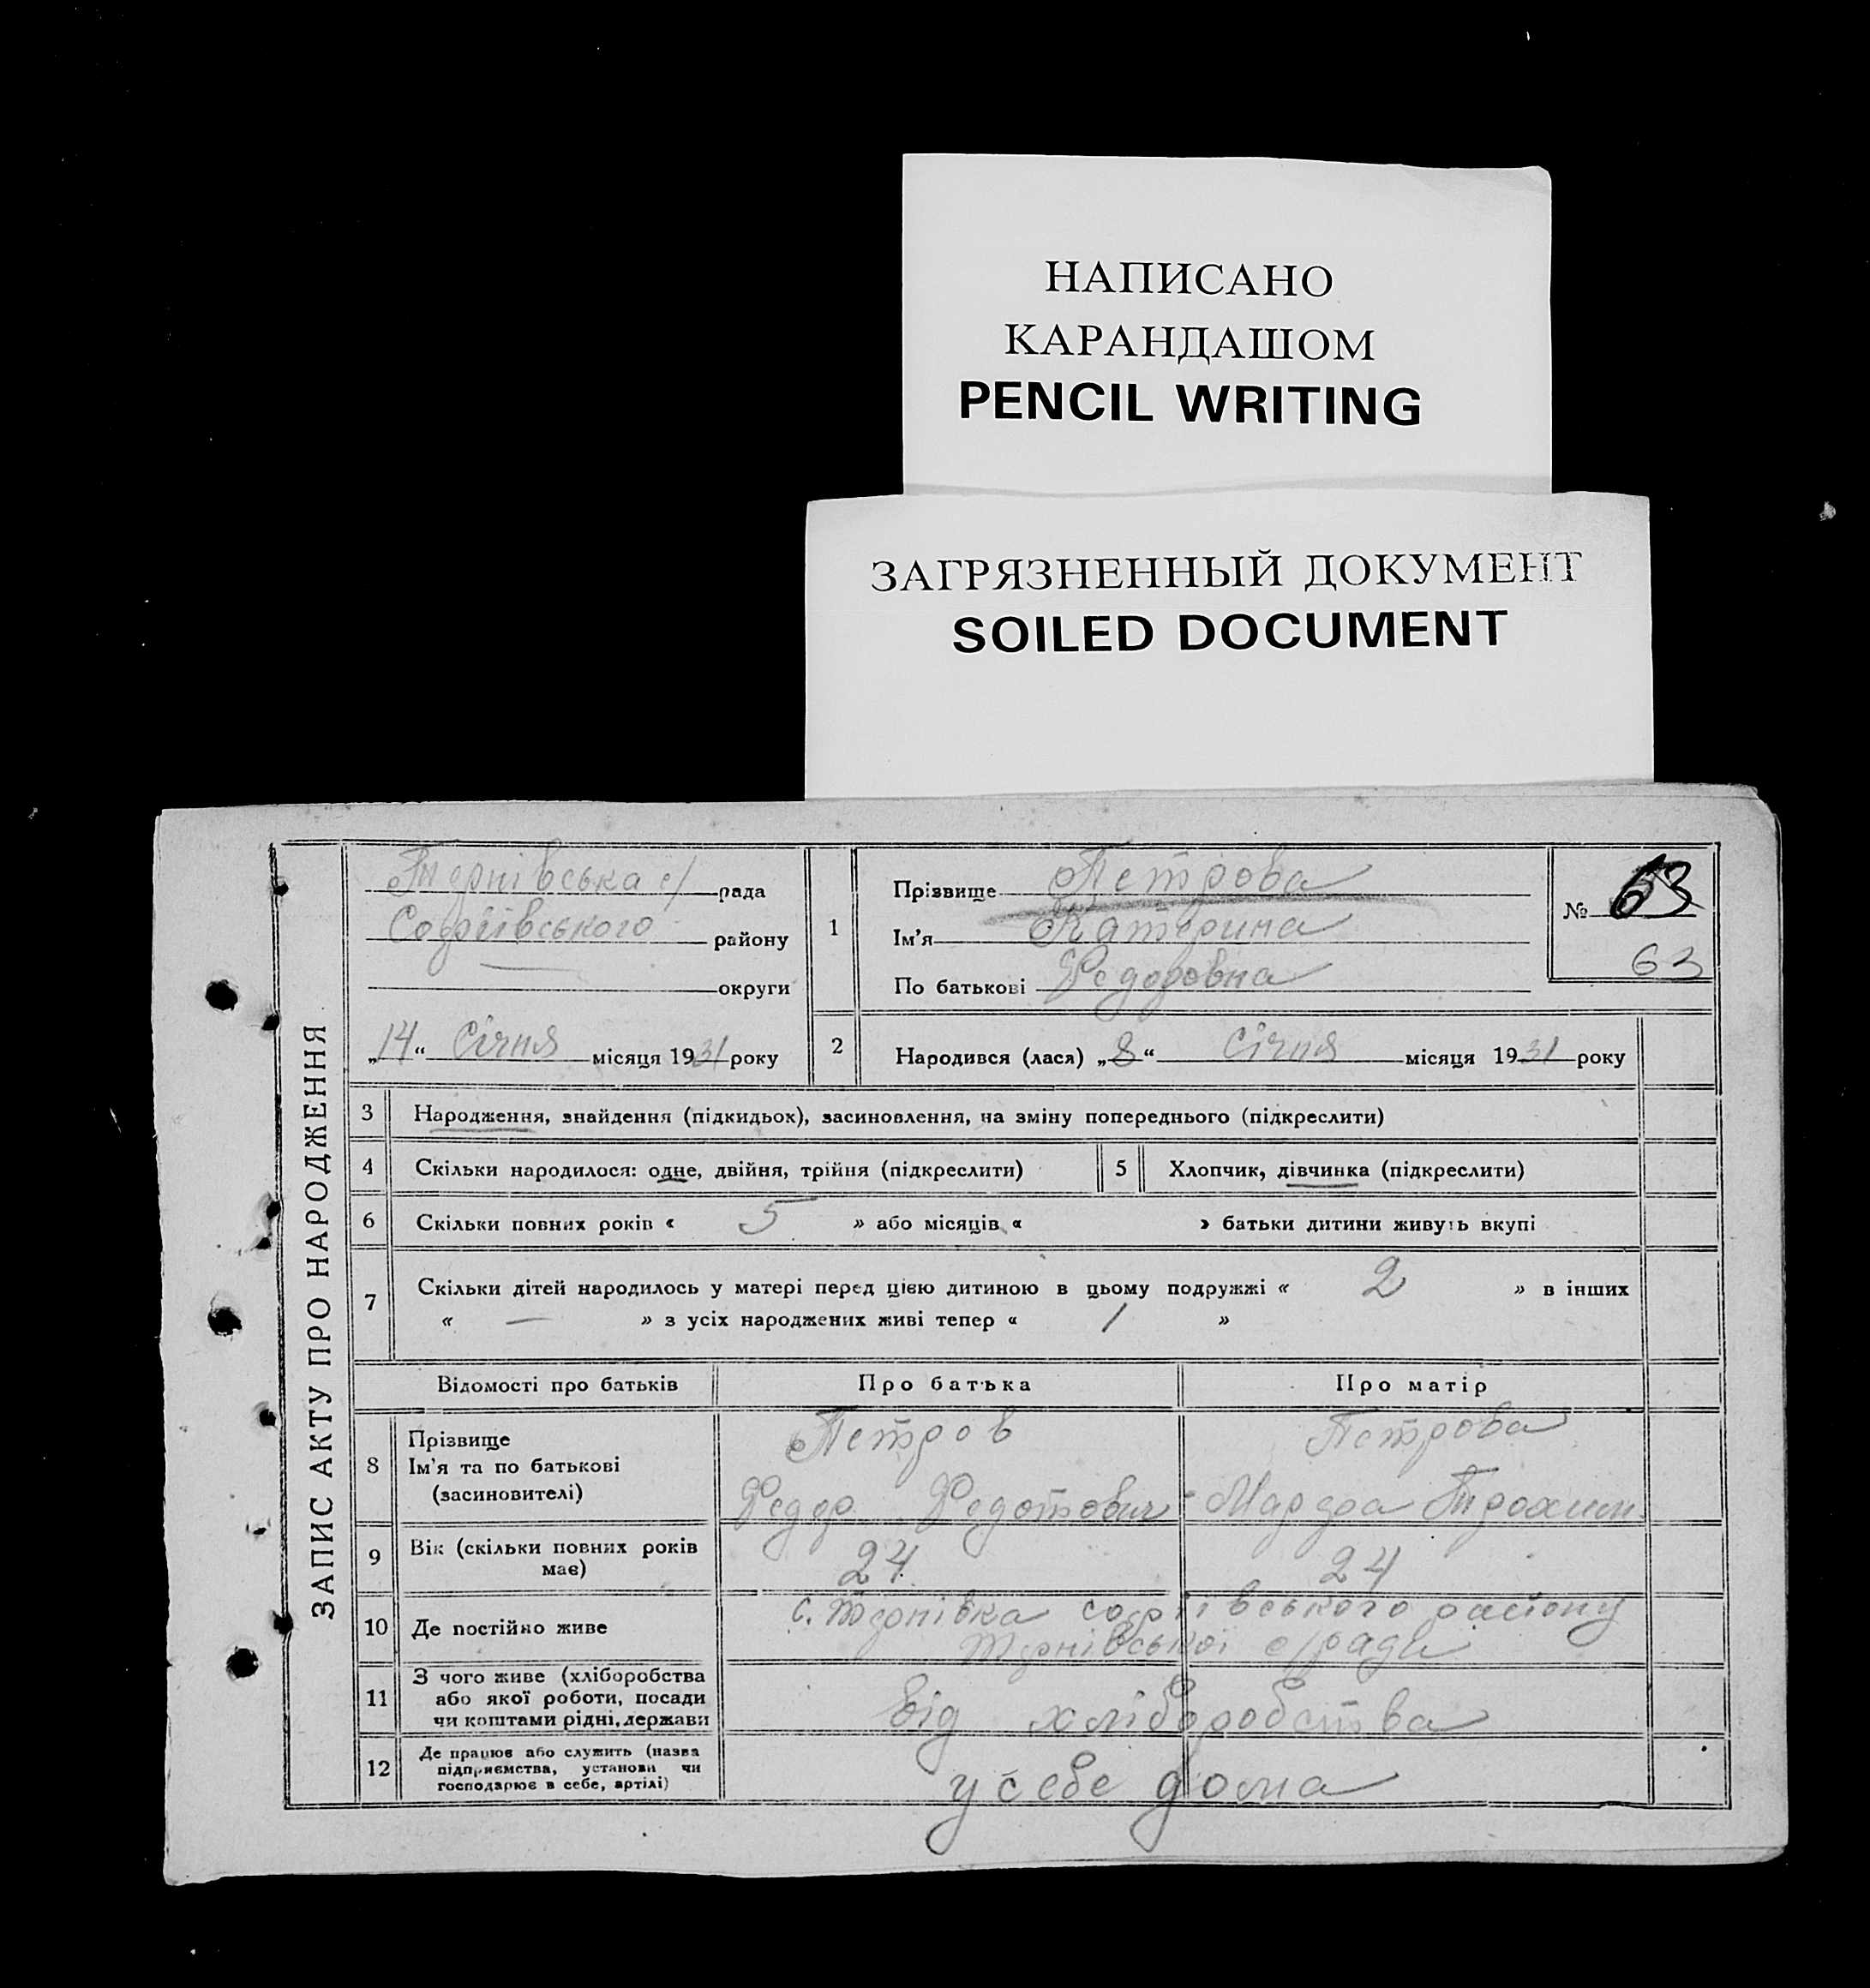 НАПИСАНО
КАРАНДАШОМ
PENCIL WRITING
ЗАГРЯЗНЕННЫЙ ДОКУМЕНТ
SOILED DOCUMENT
ЗАПИС АКТУ ПРО НАРОДЖЕННЯ
Тернівська с/ рада
Софіївського району
округи
„14“ Січня місяця 1931 року
1
Прізвище Петрова
Ім'я Катерина
По батькові Федоровна
№ 63
63
2 Народився (лася) „8“ Січня місяця 1931 року
3 Народження, знайдення (підкидьох), засиновлення, на зміну попереднього (підкреслити)
4 Скільки народилося: одне, двійня, трійня (підкреслити) 5 Хлопчик, дівчинка (підкреслити)
6 Скільки повних років « 5 » або місяців « » батьки дитини живуть вкупі
7 Скільки дітей народилось у матері перед цією дитиною в цьому подружжі « 2 » в інших
« — » з усіх народжених живі тепер « 1 »
Відомості про батьків Про батька Про матір
8 Прізвище Петров Петрова
Ім'я та по батькові
(засиновителі) Федор Федотович Марфа Трохим
9 Вік (скільки повних років
має) 24 24
10 Де постійно живе с. Тернівка софіївського району
Тернівської с/ради
11 З чого живе (хліборобства
або якої роботи, посади
чи коштами рідні, держави від хліборобства
12 Де працює або служить (назва
підприємства, установи чи
господарює в себе, артілі) у себе дома